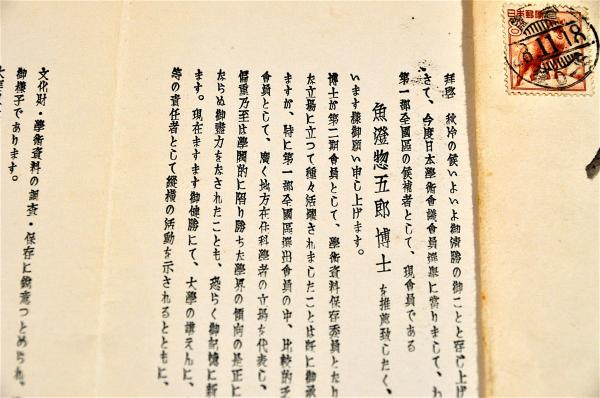 拝啓 秋冷の候いよいよ御清勝の御ことと存じ上げ
さて、今度日本學術會議會員選擧に當りまして、わ
第一部全國區の候補者として、現會員である
魚澄惣五郎博士を推薦致したく、
います樣御願い申し上げます。
博士が第二期會員として、學術資料保存委員となり
た立場に立つて種々活躍されましたことは既に御承
ますが、特に第一部全國區選出會員の中、比較的乏
會員として、廣く地方在住科學者の立場を代表し、
偏重乃至は學閥的に陥り勝ちな學界の傾向の是正に
たらぬ御盡力をなされたことも、恐らく御記憶に新
ます。現在ますます御健勝にて、大學の講えんに、
等の責任者として縱横の活動を示されるとともに、
文化財・學術資料の調査・保存に鋭意つとめられ、
御樣子であります。
日本郵便
11.18